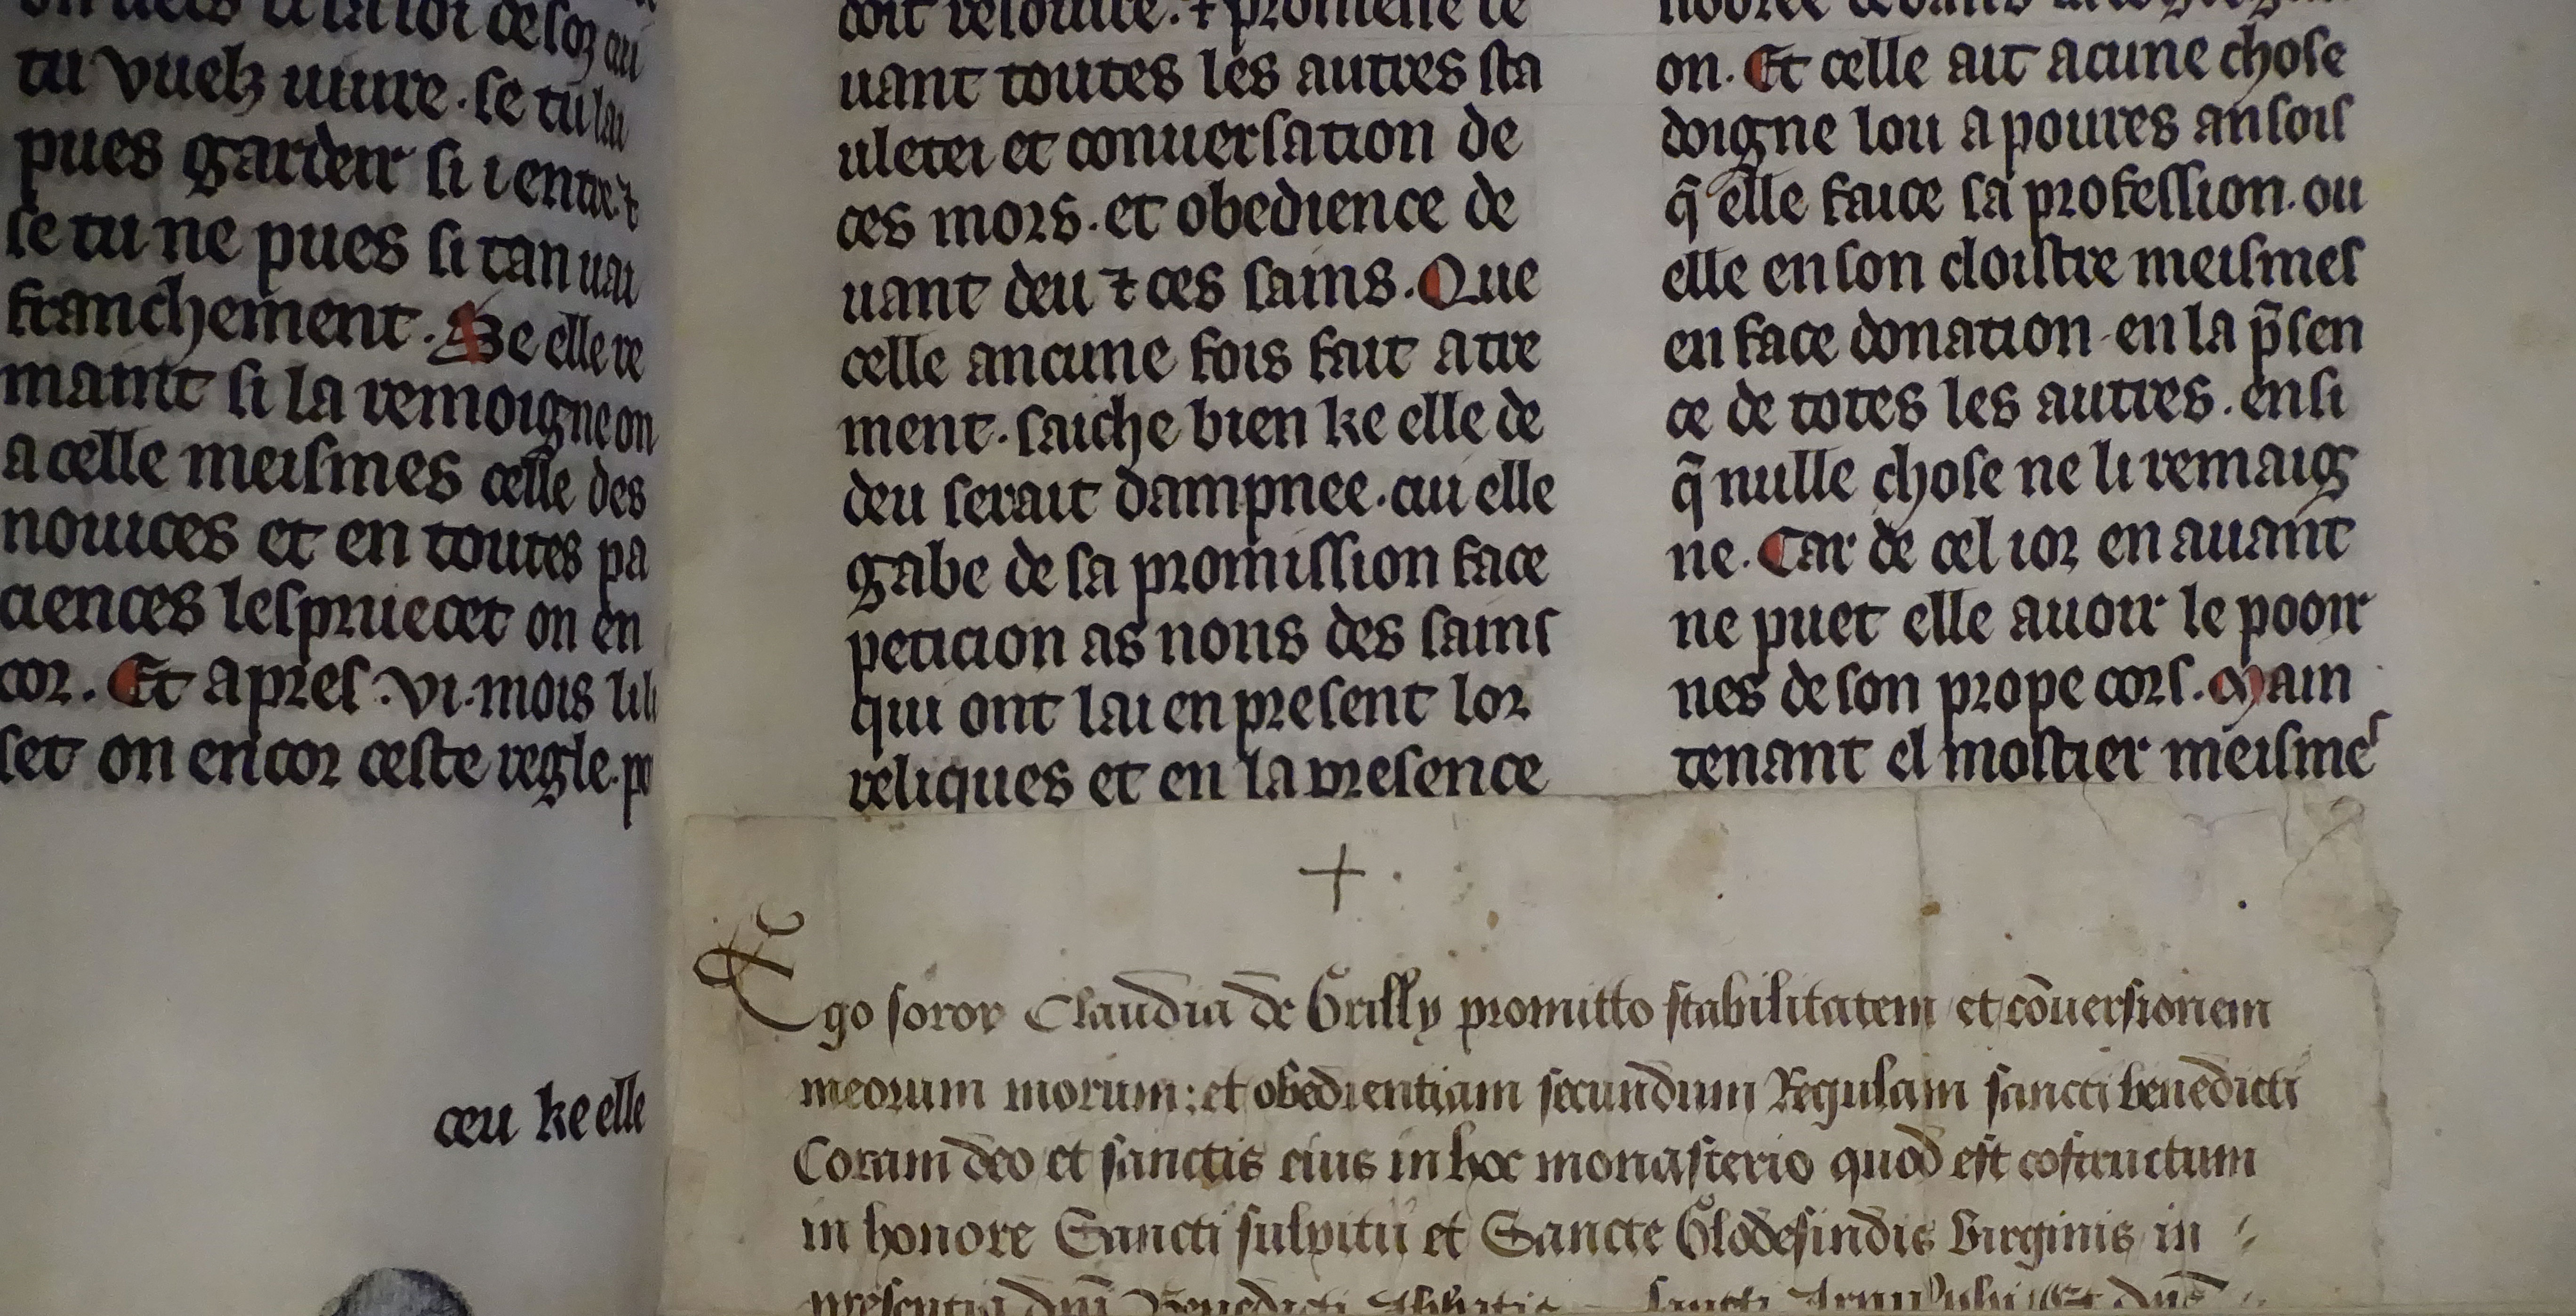 tu vuelz uiure . se tu lai
pues gardeir si i entre ⁊
se tu ne pues si tan uai
franchement . Se elle re
maint si la remoigne on
a celle meismes celle des
nouices et en toutes pa
ciences lespruecet on en
cor . Et apres . vi . mois lil
set on encor ceste regle . po
ceu ke elle
doit resoiure . ⁊ promesse de
uant toutes les autres sta
uletei et conuersation de
ces mors . et obedience de
uant deu ⁊ ces sains . Que
celle ancune fois fait atre
ment . saiche bien ke elle de
deu serait dampnee . cui elle
gabe de sa promission face
peticion as nons des sains
qui ont lai en present lor
reliques et en la presence
on . Et celle ait acune chose
doigne lou a poures ansois
q̄ elle faice sa profession . ou
elle en son cloistre meismes
en face donation en la p̄sen
ce de totes les autres . ensi
q̄ nulle chose ne li remaig
ne . Car de cel ior en auant
ne puet elle auoir le pooir
nes de son prope cors . Main
tenant el mostier meismes
+
Ego soror Claudia de Grilly promitto stabilitatem et cōuersionem
meorum morum : et obedientiam secundum Regulam sancti benedicti
Coram deo et sanctis eius in hoc monasterio quod est cōstructum
in honore Sancti sulpitii et Sancte Glodesindis Virginis in
presentia dn̄i Benedicti Abbatis sancti Arnulphi Et dn̄e